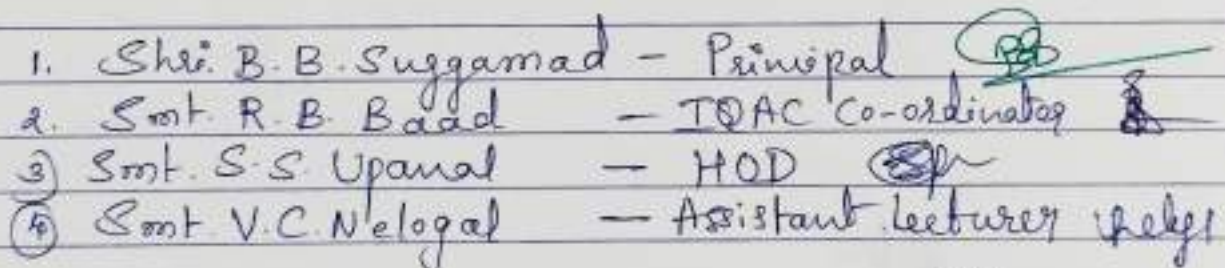 1. Shri. B. B. Suggamad - Prinvipal
2. Smt. R. B. Baad - IQAC Co-ordinator
3) Smt. S. S. Upanal - HOD
4 Smt. V. C. Nelogal - Assistant Lecturer